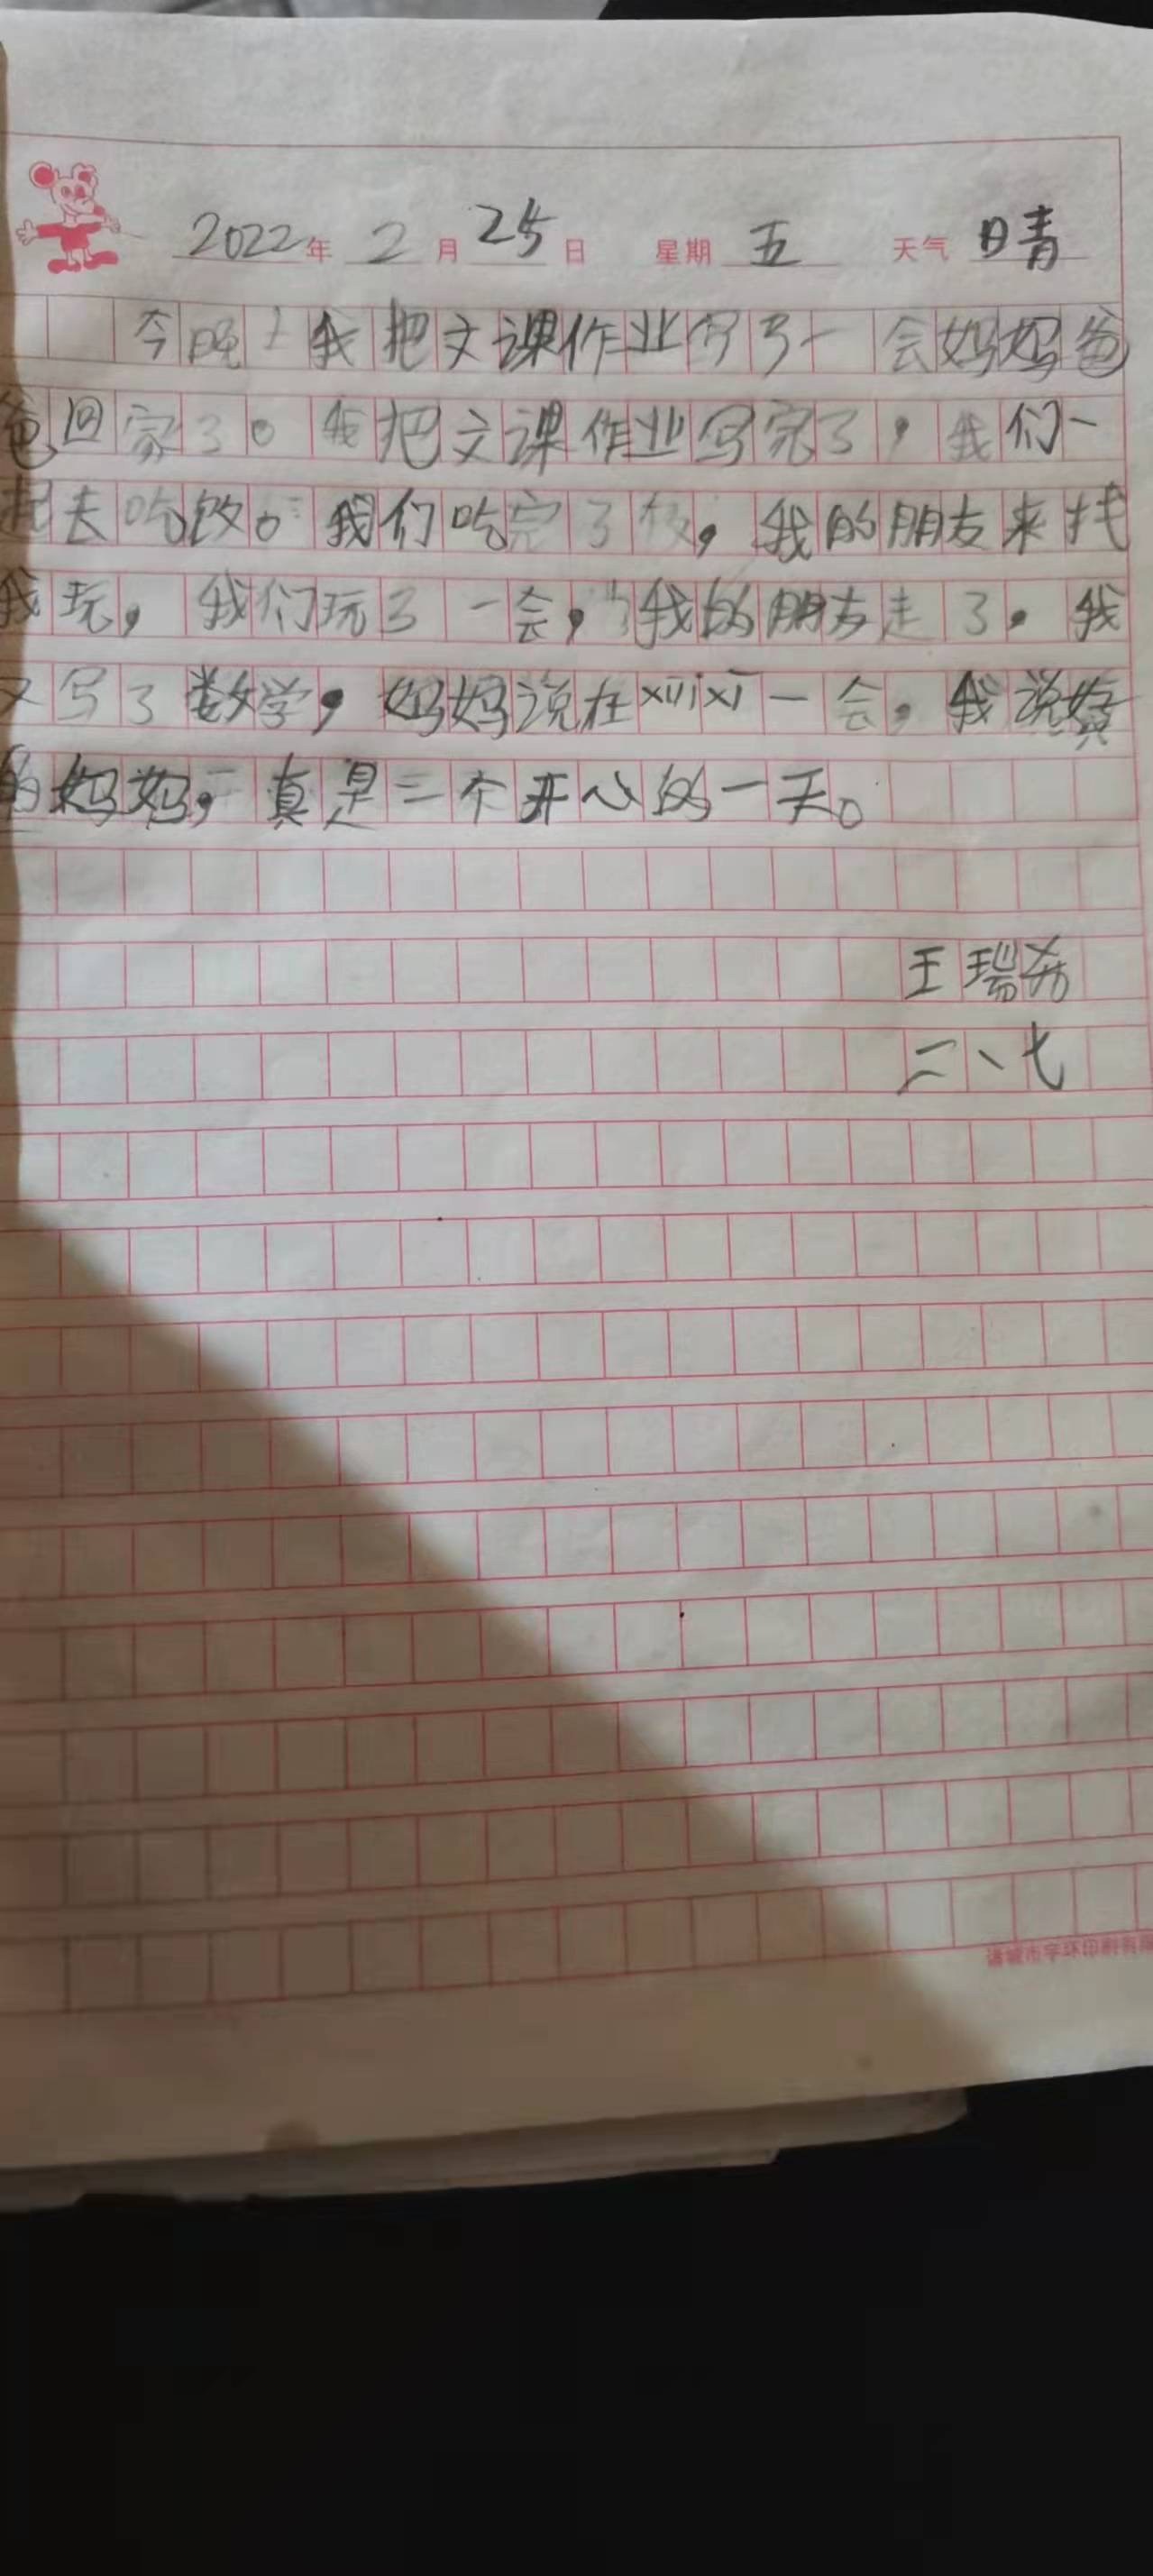 2022年 2月 25日 星期 五 天气 晴
今晚上我把文课作业写了一会妈妈爸
爸回家了。我把文课作业写完了，我们一
起去吃饭。我们吃完了饭，我的朋友来找
我玩，我们玩了一会，我的朋友走了。我
又写了数学，妈妈说在xiūixi一会。我说
的妈妈，真是一个开心的一天。
王瑞希
二、七
诸城市宇环印刷有限